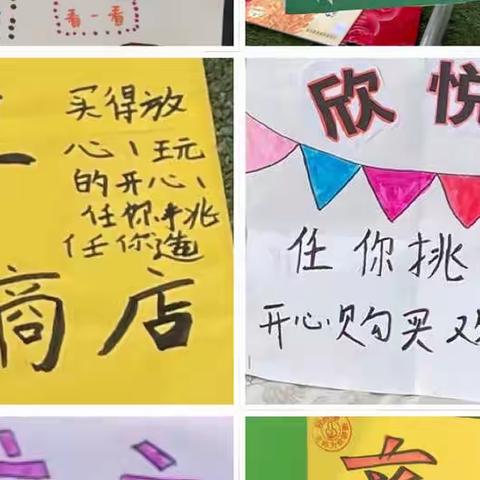 看一看
买得放
心、玩
的开心、
任你挑
任你造
商店
欣悦
任你挑
开心购买